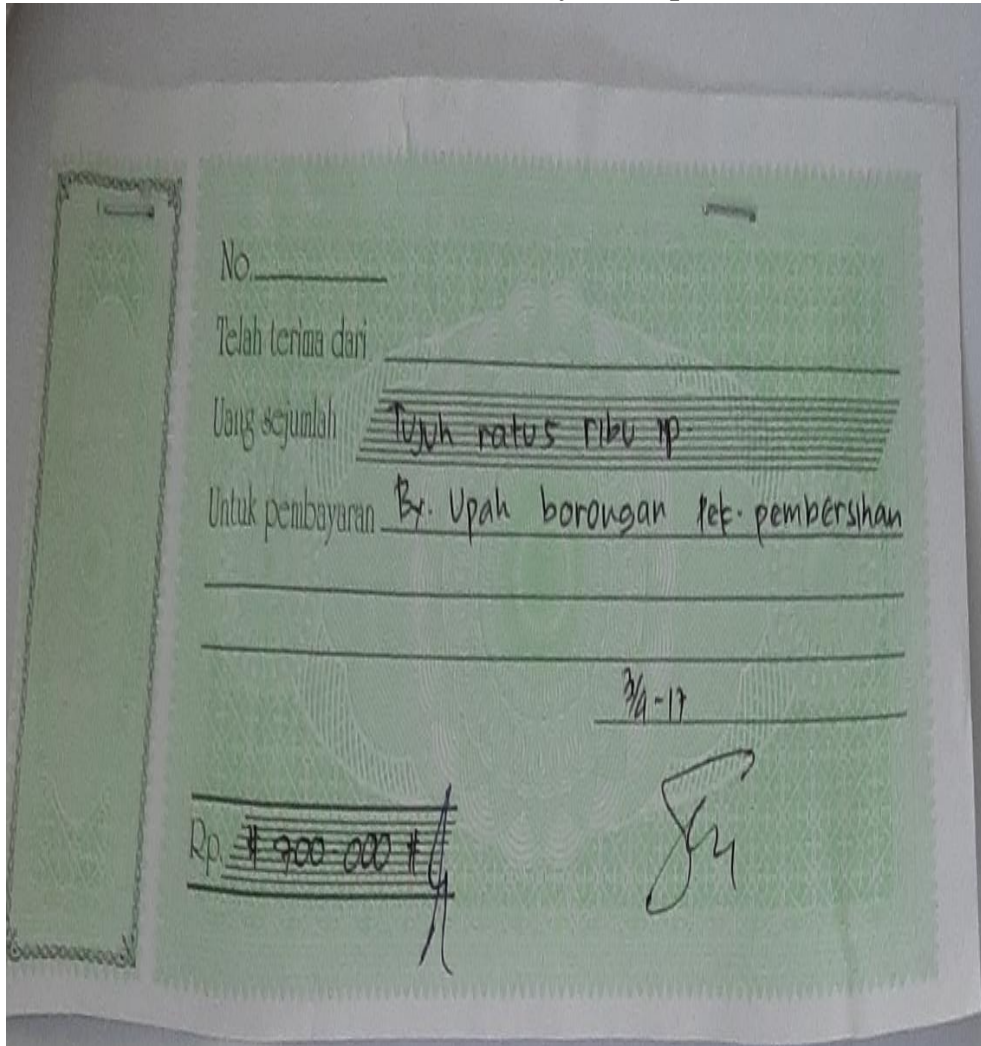 No.
Telah terima dari
Uang sejumlah Tujuh ratus ribu rp.
Untuk pembayaran By. Upah borongan pek. pembersihan
3/4-17
Rp. # 700 000 #